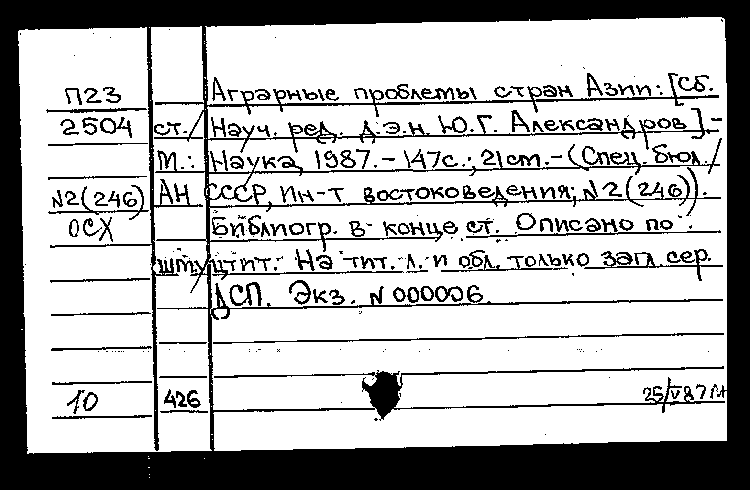 П23 Аграрные проблемы стран Азии: [Сб.
2504 ст./ Науч. ред. д.э.н. Ю.Г. Александров].-
М.: Наука, 1987.- 147с.; 21см.- (Спец. бюл./
N2(246) АН СССР, Ин-т востоковедения; N2(246)).
ОСХ Библиогр. в конце ст. Описано по
шмуцтит. На тит. л. и обл. только загл. сер.
ДСП. Экз. N 000006.
10 426 25/V87